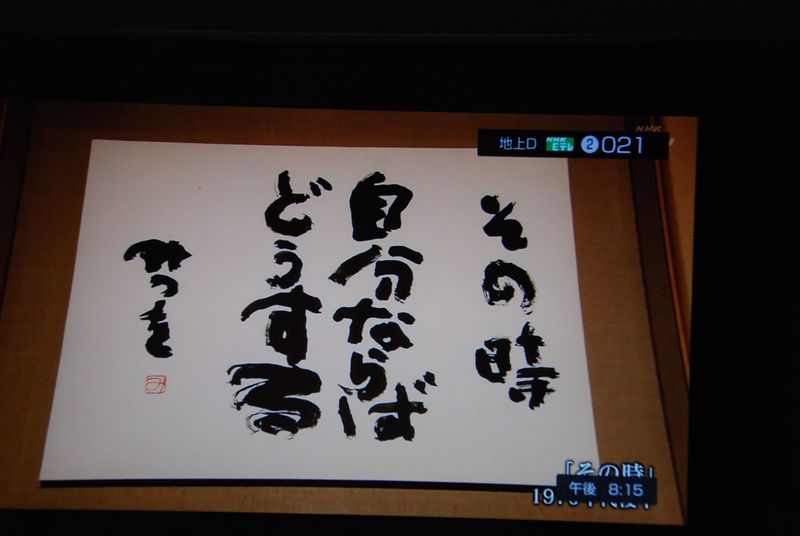 NHK
地上D NHK Eテレ 2 021
その時
自分ならば
どうする
みつを
「その時」
午後 8:15